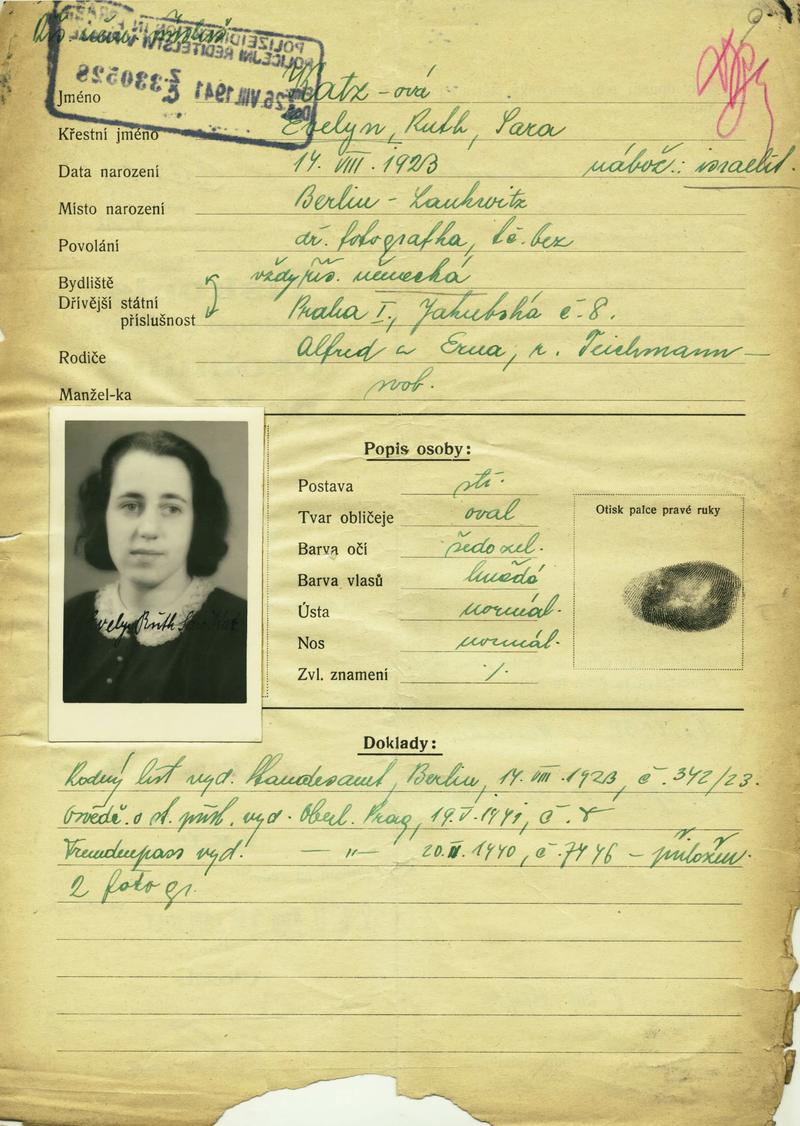 POLIZEIDIREKTION IN PRAG
POLICEJNÍ ŘEDITELSTVÍ V PRAZE
Z. 330528
Č.
26. VIII. 1941
Jméno Katz - ová
Křestní jméno Evelyn, Ruth, Sara
Data narození 14. VIII. 1923 nábož.: israelit.
Místo narození Berlin - Lankwitz
Povolání dř. fotografka, tč. bez
Bydliště vždy říš. německá
Dřívější státní
příslušnost Praha I., Jakubská č. 8.
Rodiče Alfred a Erna, r. Teichmann
Manžel-ka svob.
Popis osoby:
Postava stř.
Tvar obličeje oval
Barva očí šedozel.
Barva vlasů hnědá
Ústa normál.
Nos normál.
Zvl. znamení ./.
Otisk palce pravé ruky
Evelyn Ruth Sara Katz
Doklady:
Rodný list vyd. Standesamt, Berlin, 14. VIII. 1923, č. 342/23.
Osvědč. o st. přísl. vyd. Oberl. Prag, 19. V. 1941, č.
Fremdenpass vyd. — " — 1940, č. 7446 - přiložen.
2 fotogr.